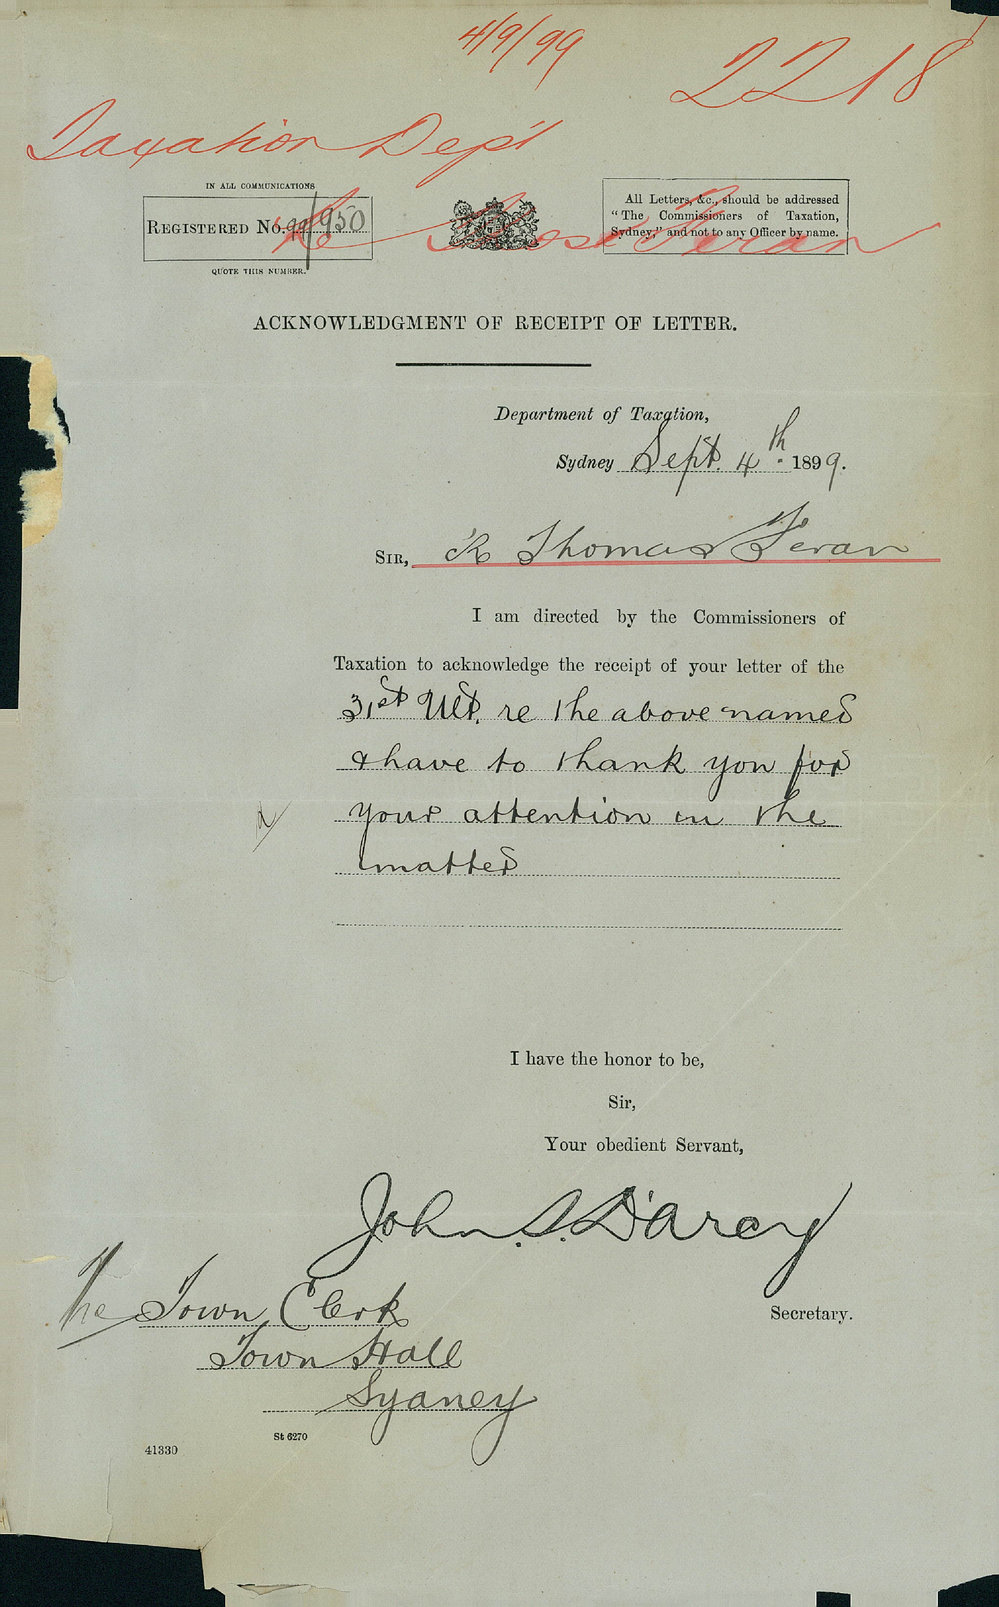 4/9/99
2218
Taxation Dept
Re Thos Feran
IN ALL COMMUNICATIONS
REGISTERED No. 99/950
QUOTE THIS NUMBER.
All Letters, &c., should be addressed
"The Commissioners of Taxation,
Sydney," and not to any Officer by name.
ACKNOWLEDGMENT OF RECEIPT OF LETTER.
Department of Taxation,
Sydney Sept. 4th 1899.
SIR, Re Thomas Feran
I am directed by the Commissioners of
Taxation to acknowledge the receipt of your letter of the
31st Ult. re the above named
& have to thank you for
your attention in the
matter
I have the honor to be,
Sir,
Your obedient Servant,
John S. D'Arcy
Secretary.
The Town Clerk
Town Hall
Sydney
St 6270
41330